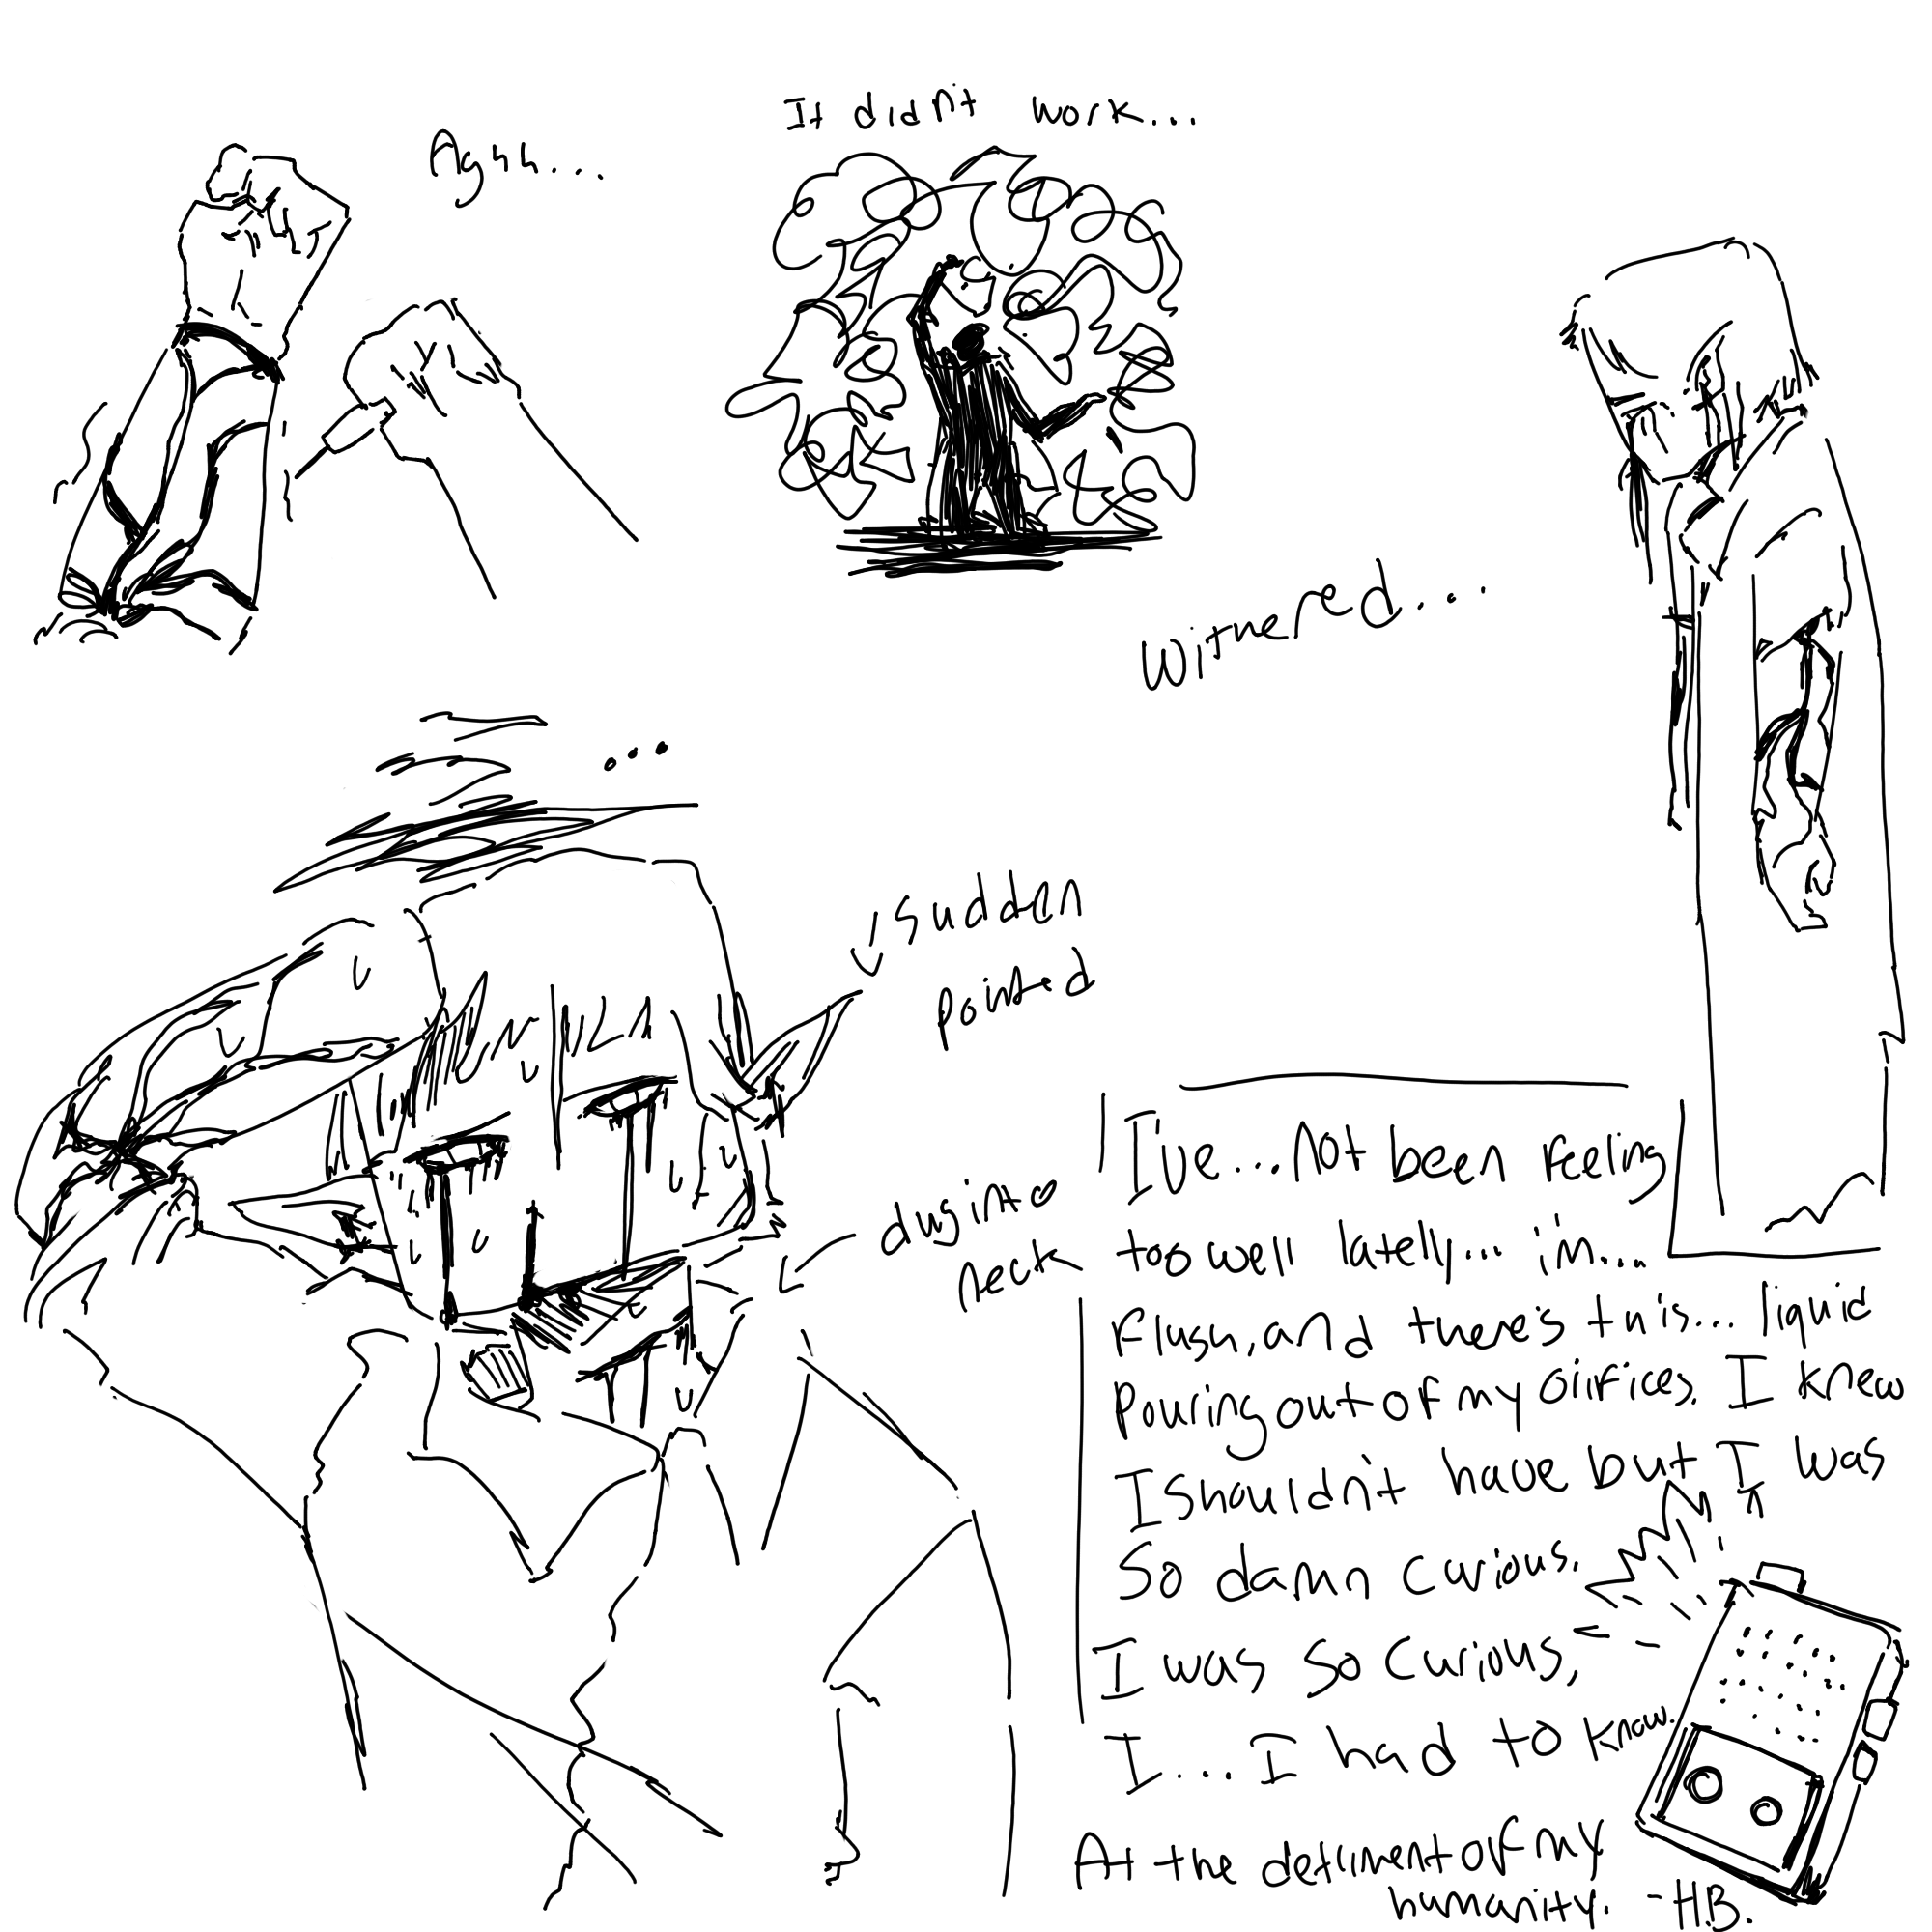 Aghh...
It didn't work...
Withered...
...
sudden
pointed
dug into
neck
I've... not been feeling
too well latelly... i'm...
flush, and there's this... liquid
pouring out of my oiifices. I knew
I shouldn't have but I was
so damn curious.
I was so curious,
I... I had to know.
At the detriment of my
humanity. -H.B.